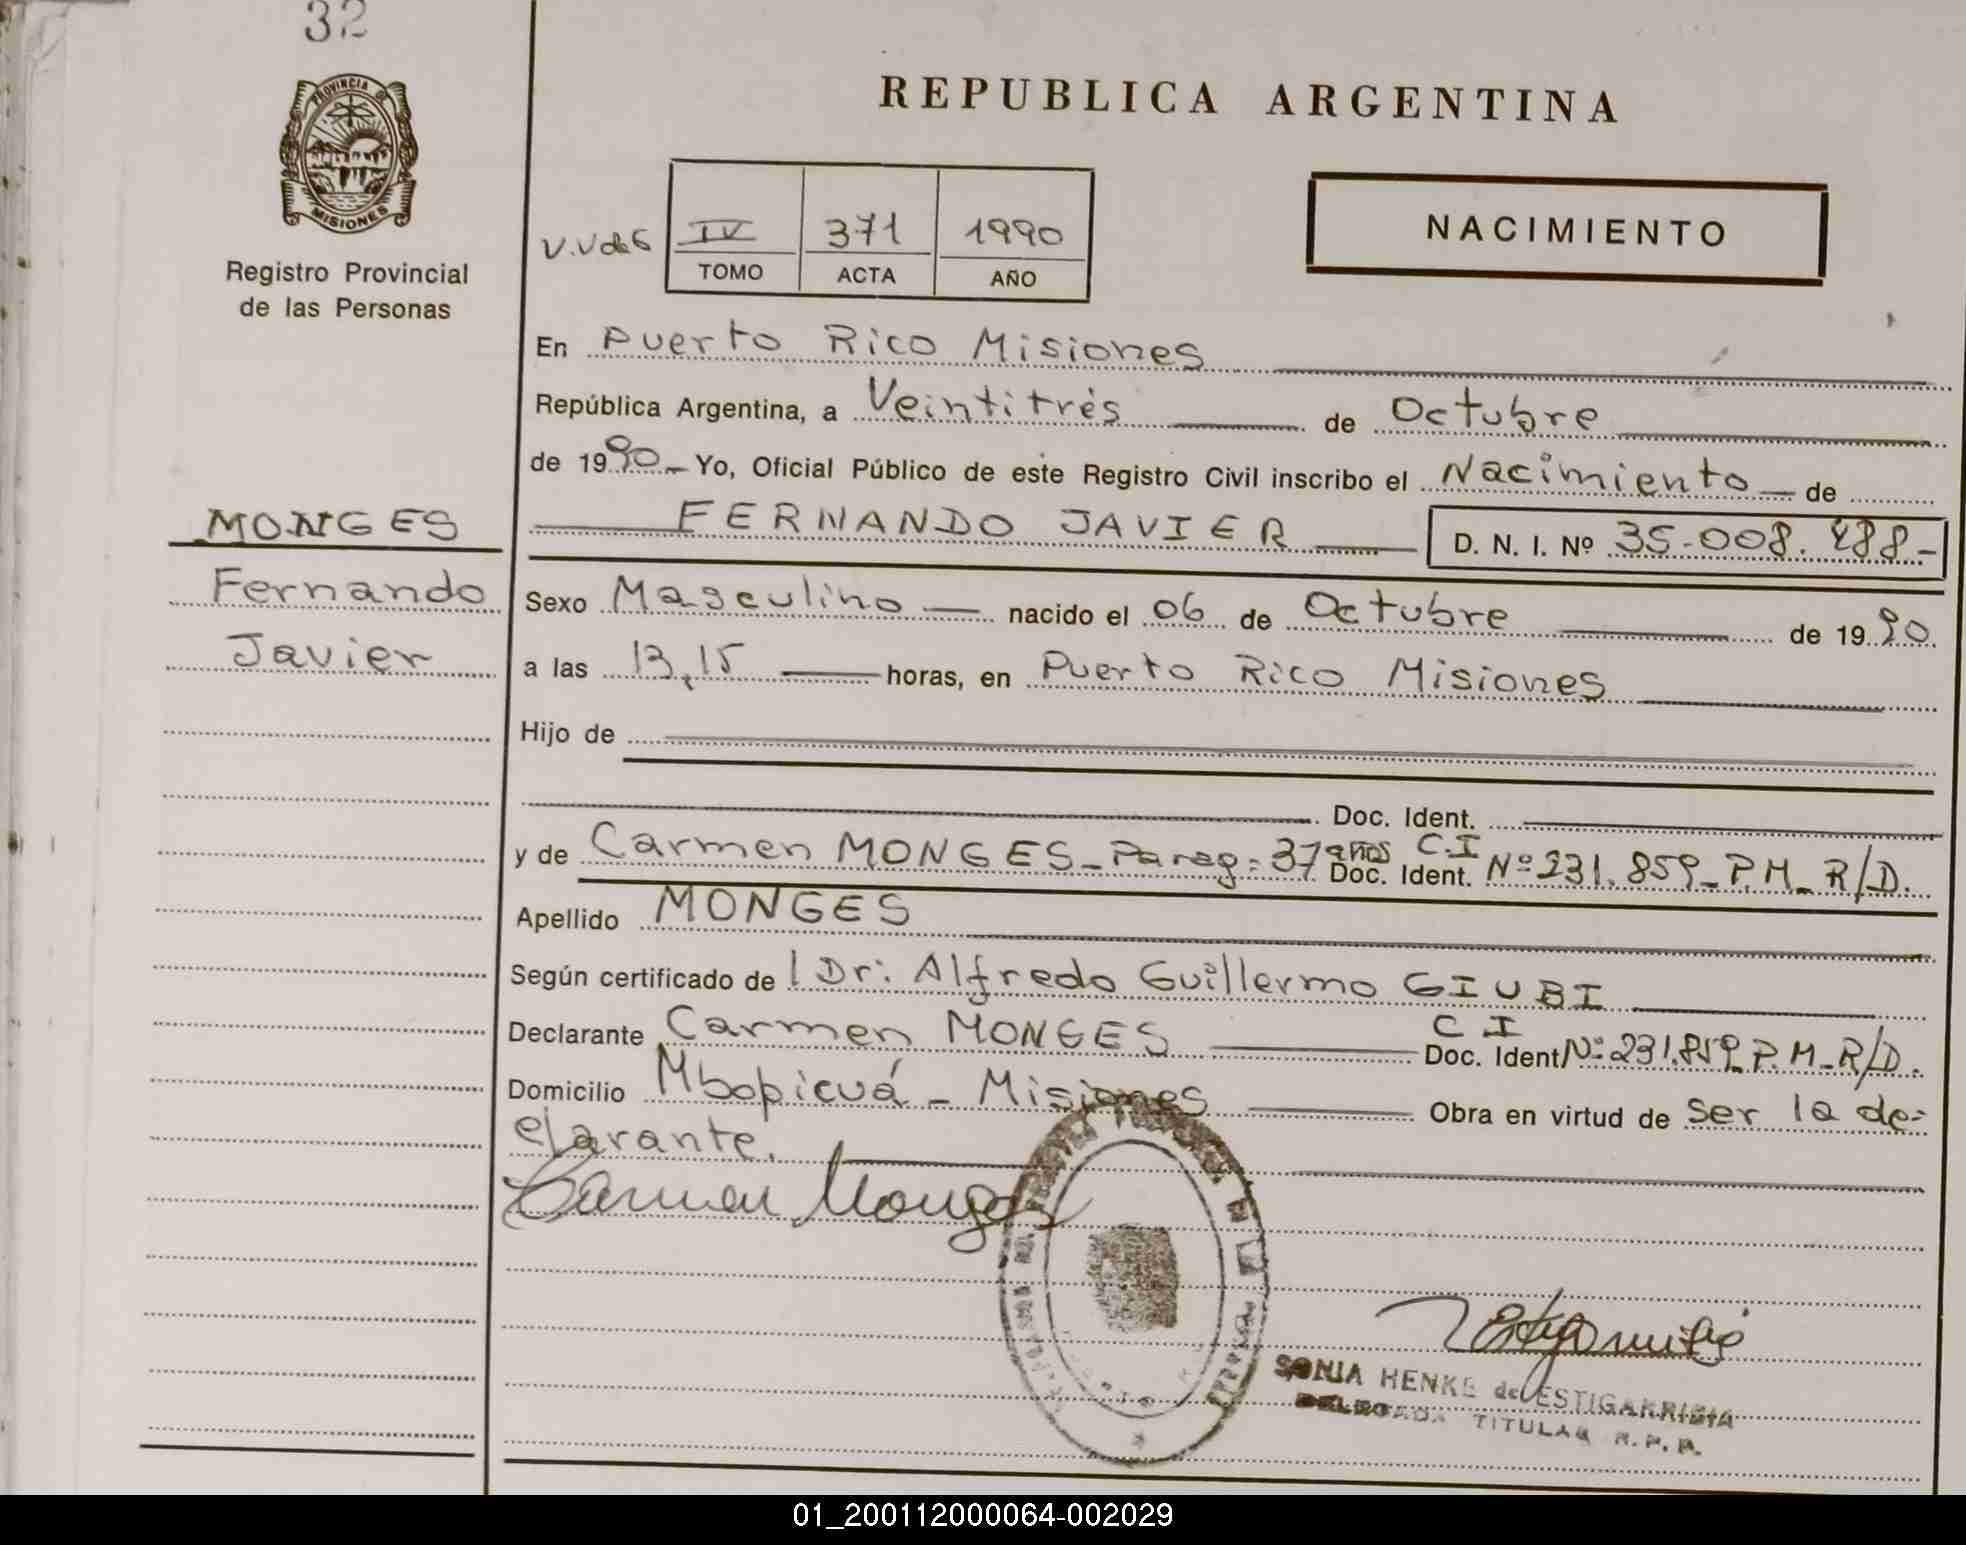 32
PROVINCIA DE
MISIONES
Registro Provincial
de las Personas
REPUBLICA ARGENTINA
IV 371 1990
TOMO ACTA AÑO
NACIMIENTO
En Puerto Rico Misiones
República Argentina, a Veintitrés de Octubre
de 1990 Yo, Oficial Público de este Registro Civil inscribo el Nacimiento de
MONGES
Fernando
Javier
FERNANDO JAVIER D. N. I. Nº 35.008.488-
Sexo Masculino nacido el 06 de Octubre de 1990
a las 13,15 horas, en Puerto Rico Misiones
Hijo de
Doc. Ident.
y de Carmen MONGES - Parag: 37 años Doc. Ident. C.I Nº 231.859 - P.M - R/D.
Apellido MONGES
Según certificado de l Dr: Alfredo Guillermo GIUBI
Declarante Carmen MONGES Doc. Ident. C I Nº 231.859 P.M - R/D.
Domicilio Mbopicuá - Misiones Obra en virtud de ser la de-
clarante.
Carmen Monges
SONIA HENKE de ESTIGARRIBIA
DELEGADA TITULAR R. P. P.
01_200112000064-002029